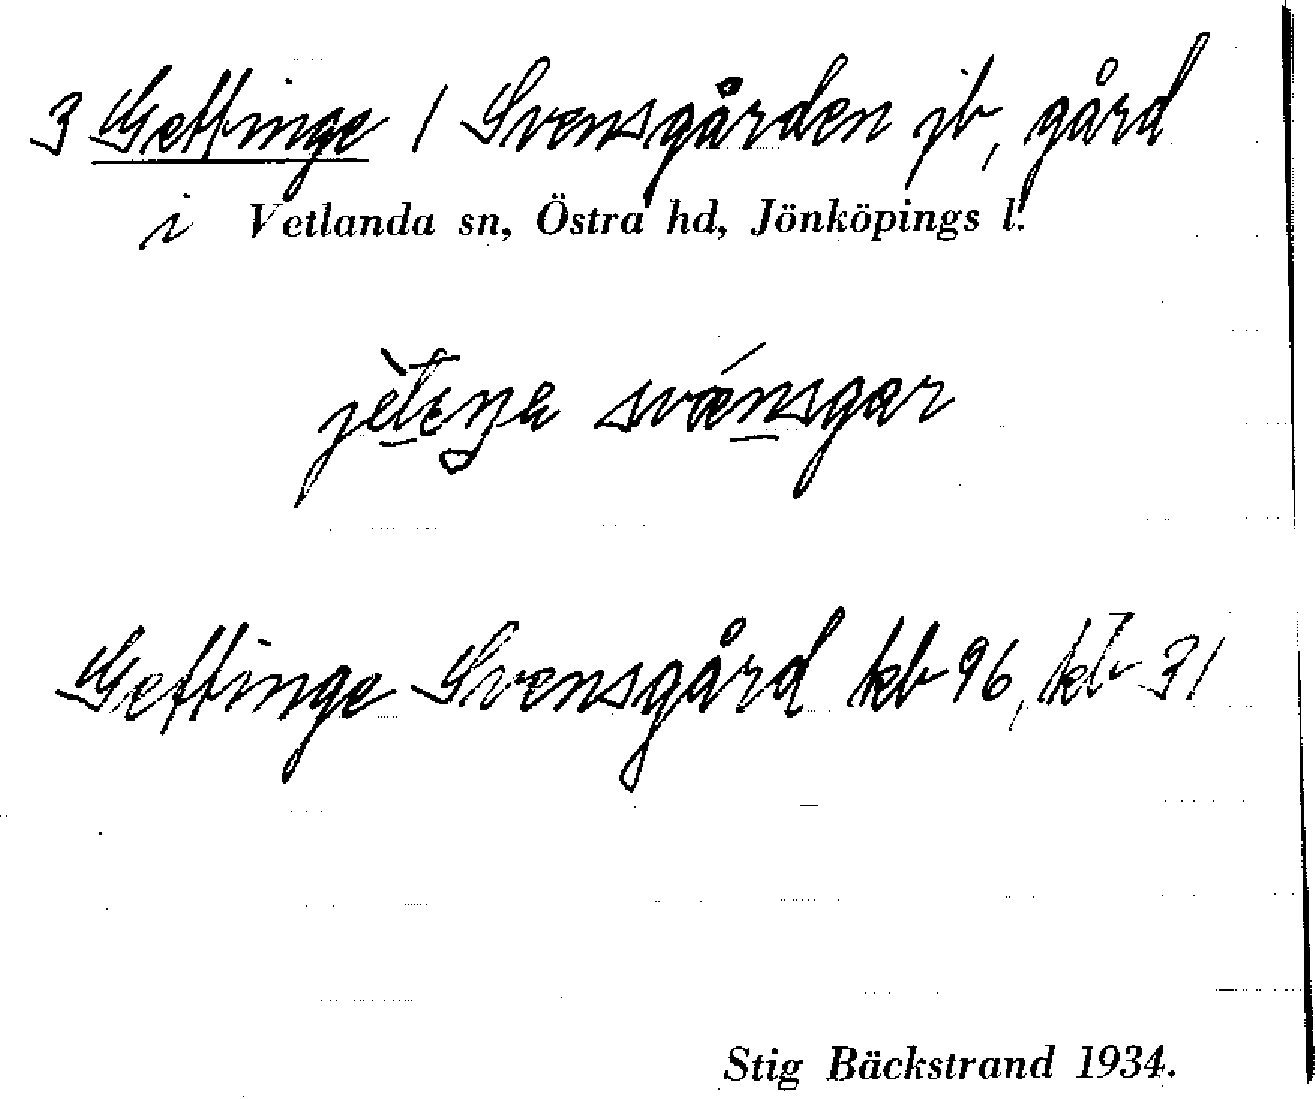 3 Gettinge 1 Svensgården jb, gård
i Vetlanda sn, Östra hd, Jönköpings l.
svǽnsgar
Gettinge Svensgård kb 96, kb 31
Stig Bäckstrand 1934.